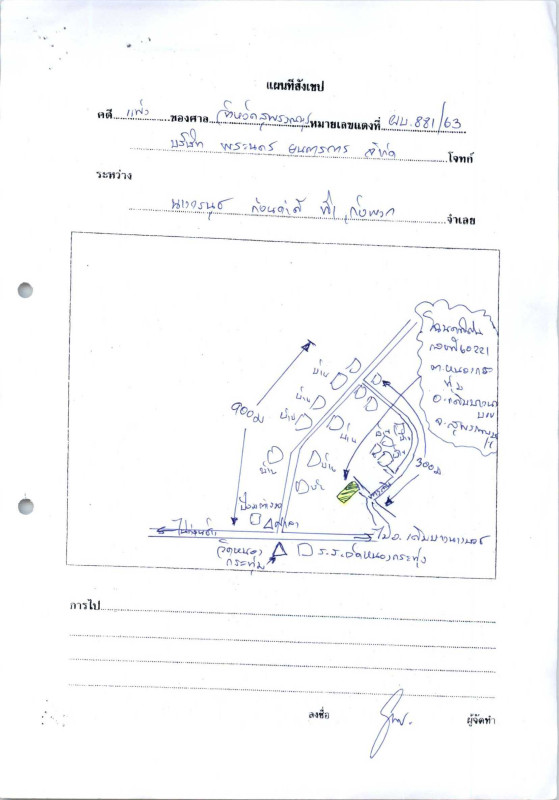 แผนที่สังเขป
คดี แพ่ง ของศาล จังหวัดสุพรรณบุรี หมายเลขแดงที่ ผบ.881/63
บริษัท พระนคร ยนตรการ จำกัด โจทก์
ระหว่าง
จำเลย
โฉนดที่ดิน
เลขที่ 60221
ต.หนองกระ
ทุ่ม
อ.เดิมบางนาง
บวช
จ.สุพรรณบุ
รี
900ม
บ้าน
บ้าน
บ้าน
บ้าน
บ้าน
บ้าน
300ม
ทางดิน
ป้อมตำรวจ
ศาลา
ไป อ.เดิมบางนางบวช
วัดหนอง
กระทุ่ม
ร.ร.วัดหนองกระทุ่ม
การไป
ลงชื่อ ผู้จัดทำ